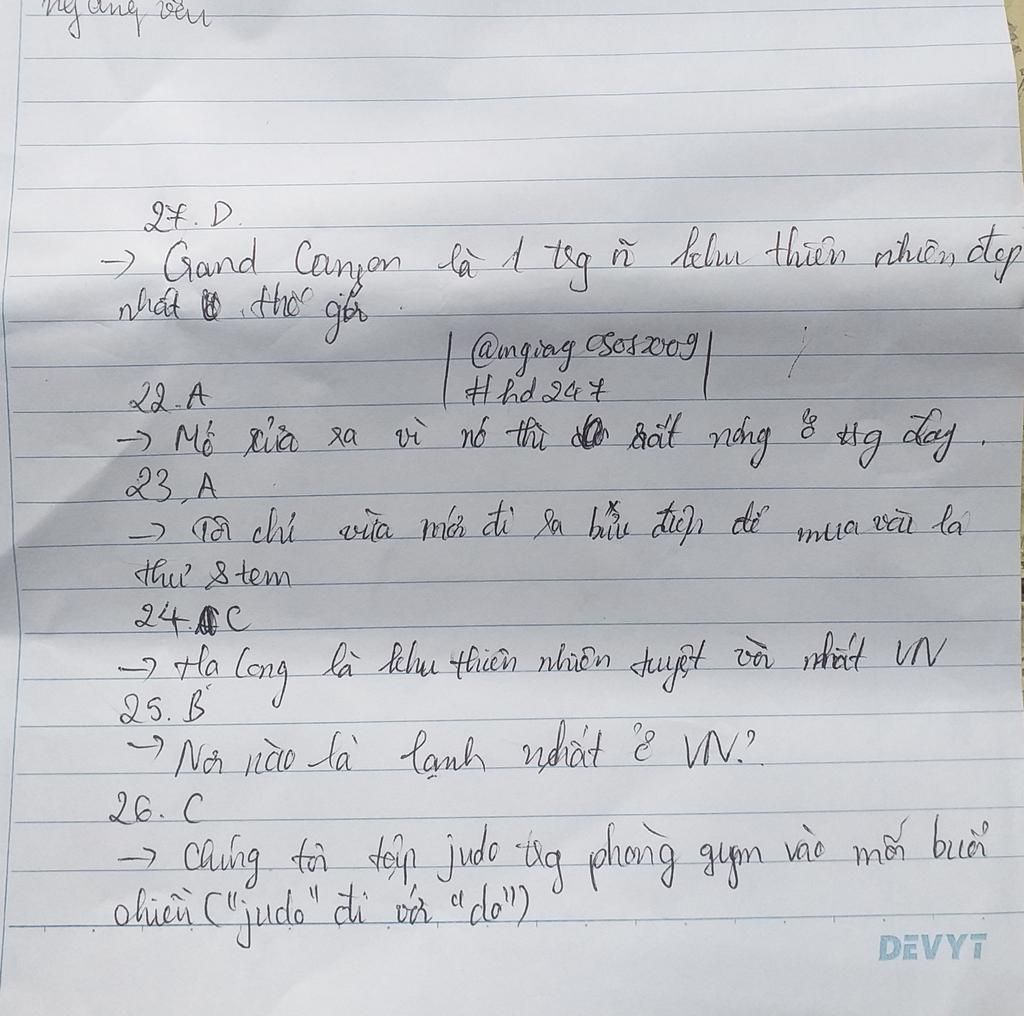 ngang vên
27. D.
→ Grand Canyon là 1 trg ~n khu thiên nhiên đẹp
nhất thế giới.
@mgiang05052009
#hd247
22. A
→ Mở cửa ra vì nó thì rất nóng ở trg đây.
23. A
→ Tôi chỉ vừa mới đi ra bưu điện để mua vài lá
thư & tem
24. C
→ Ha Long là khu thiên nhiên tuyệt vời nhất VN
25. B
→ Nơi nào là lạnh nhất ở VN?
26. C
→ Chúng tôi tập judo trg phòng gym vào mỗi buổi
chiều ("judo" đi với "do")
DEVYT